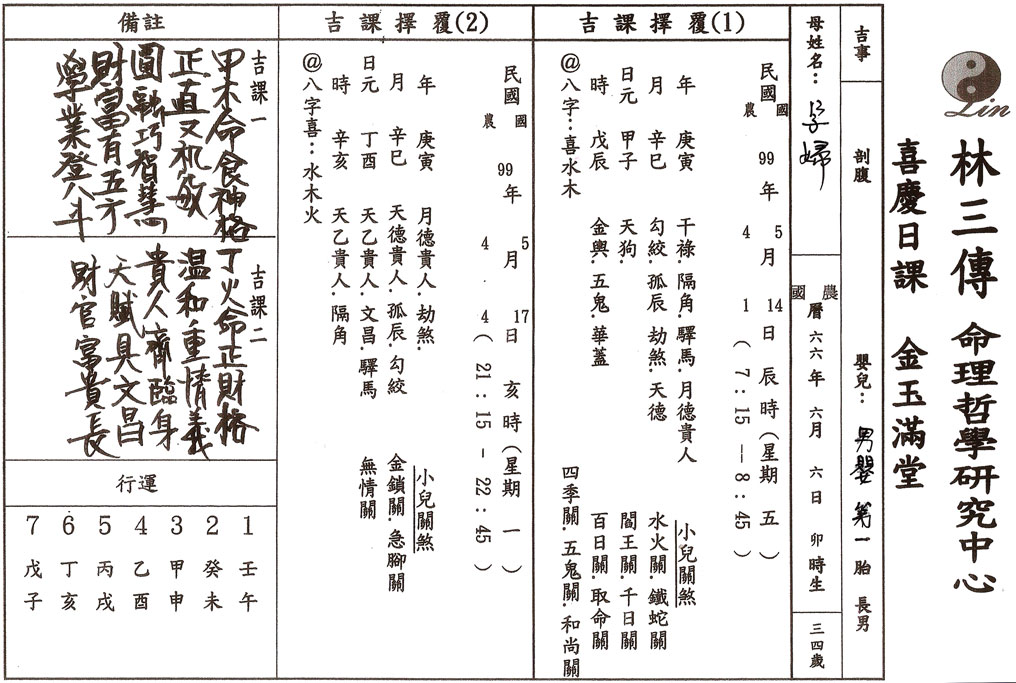 Lin
林三傳 命理哲學研究中心
喜慶日課 金玉滿堂
吉事 剖腹 嬰兒： 男嬰 第一胎 長男
母姓名： 孕婦 農國曆 六六年 六月 六日 卯時生 三四歲
吉課擇覆(1)
民國 99年 5月 14日 辰時（星期五）
國
農 4 1 （7:15—8:45）
年 庚寅 干祿.隔角.驛馬.月德貴人
月 辛巳 勾絞.孤辰.劫煞.天德
日元 甲子 天狗.
時 戊辰 金輿.五鬼.華蓋
小兒關煞
水火關.鐵蛇關
閻王關.千日關
百日關.取命關
四季關.五鬼關.和尚關
@八字：喜水木
吉課擇覆(2)
民國 99年 5月 17日 亥時（星期一）
國
農 4 4 （21:15-22:45）
年 庚寅 月德貴人.劫煞.
月 辛巳 天德貴人.孤辰.勾絞
日元 丁酉 天乙貴人.文昌.驛馬
時 辛亥 天乙貴人.隔角
小兒關煞
金鎖關.急腳關
無情關
@八字喜：水木火
備註
吉課一
甲木命食神格
正直又机敏
圓融巧智慧
財富有五方
學業登八斗
吉課二
丁火命正財格
温和重情義
貴人齊臨身
天賦具文昌
財官富貴長
行運
1 壬午
2 癸未
3 甲申
4 乙酉
5 丙戌
6 丁亥
7 戊子